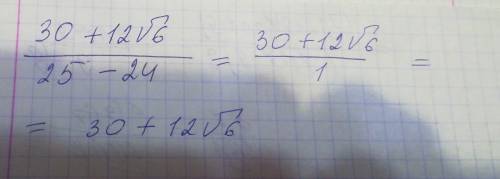 30 + 12√6 / 25 - 24 = 30 + 12√6 / 1 =
= 30 + 12√6